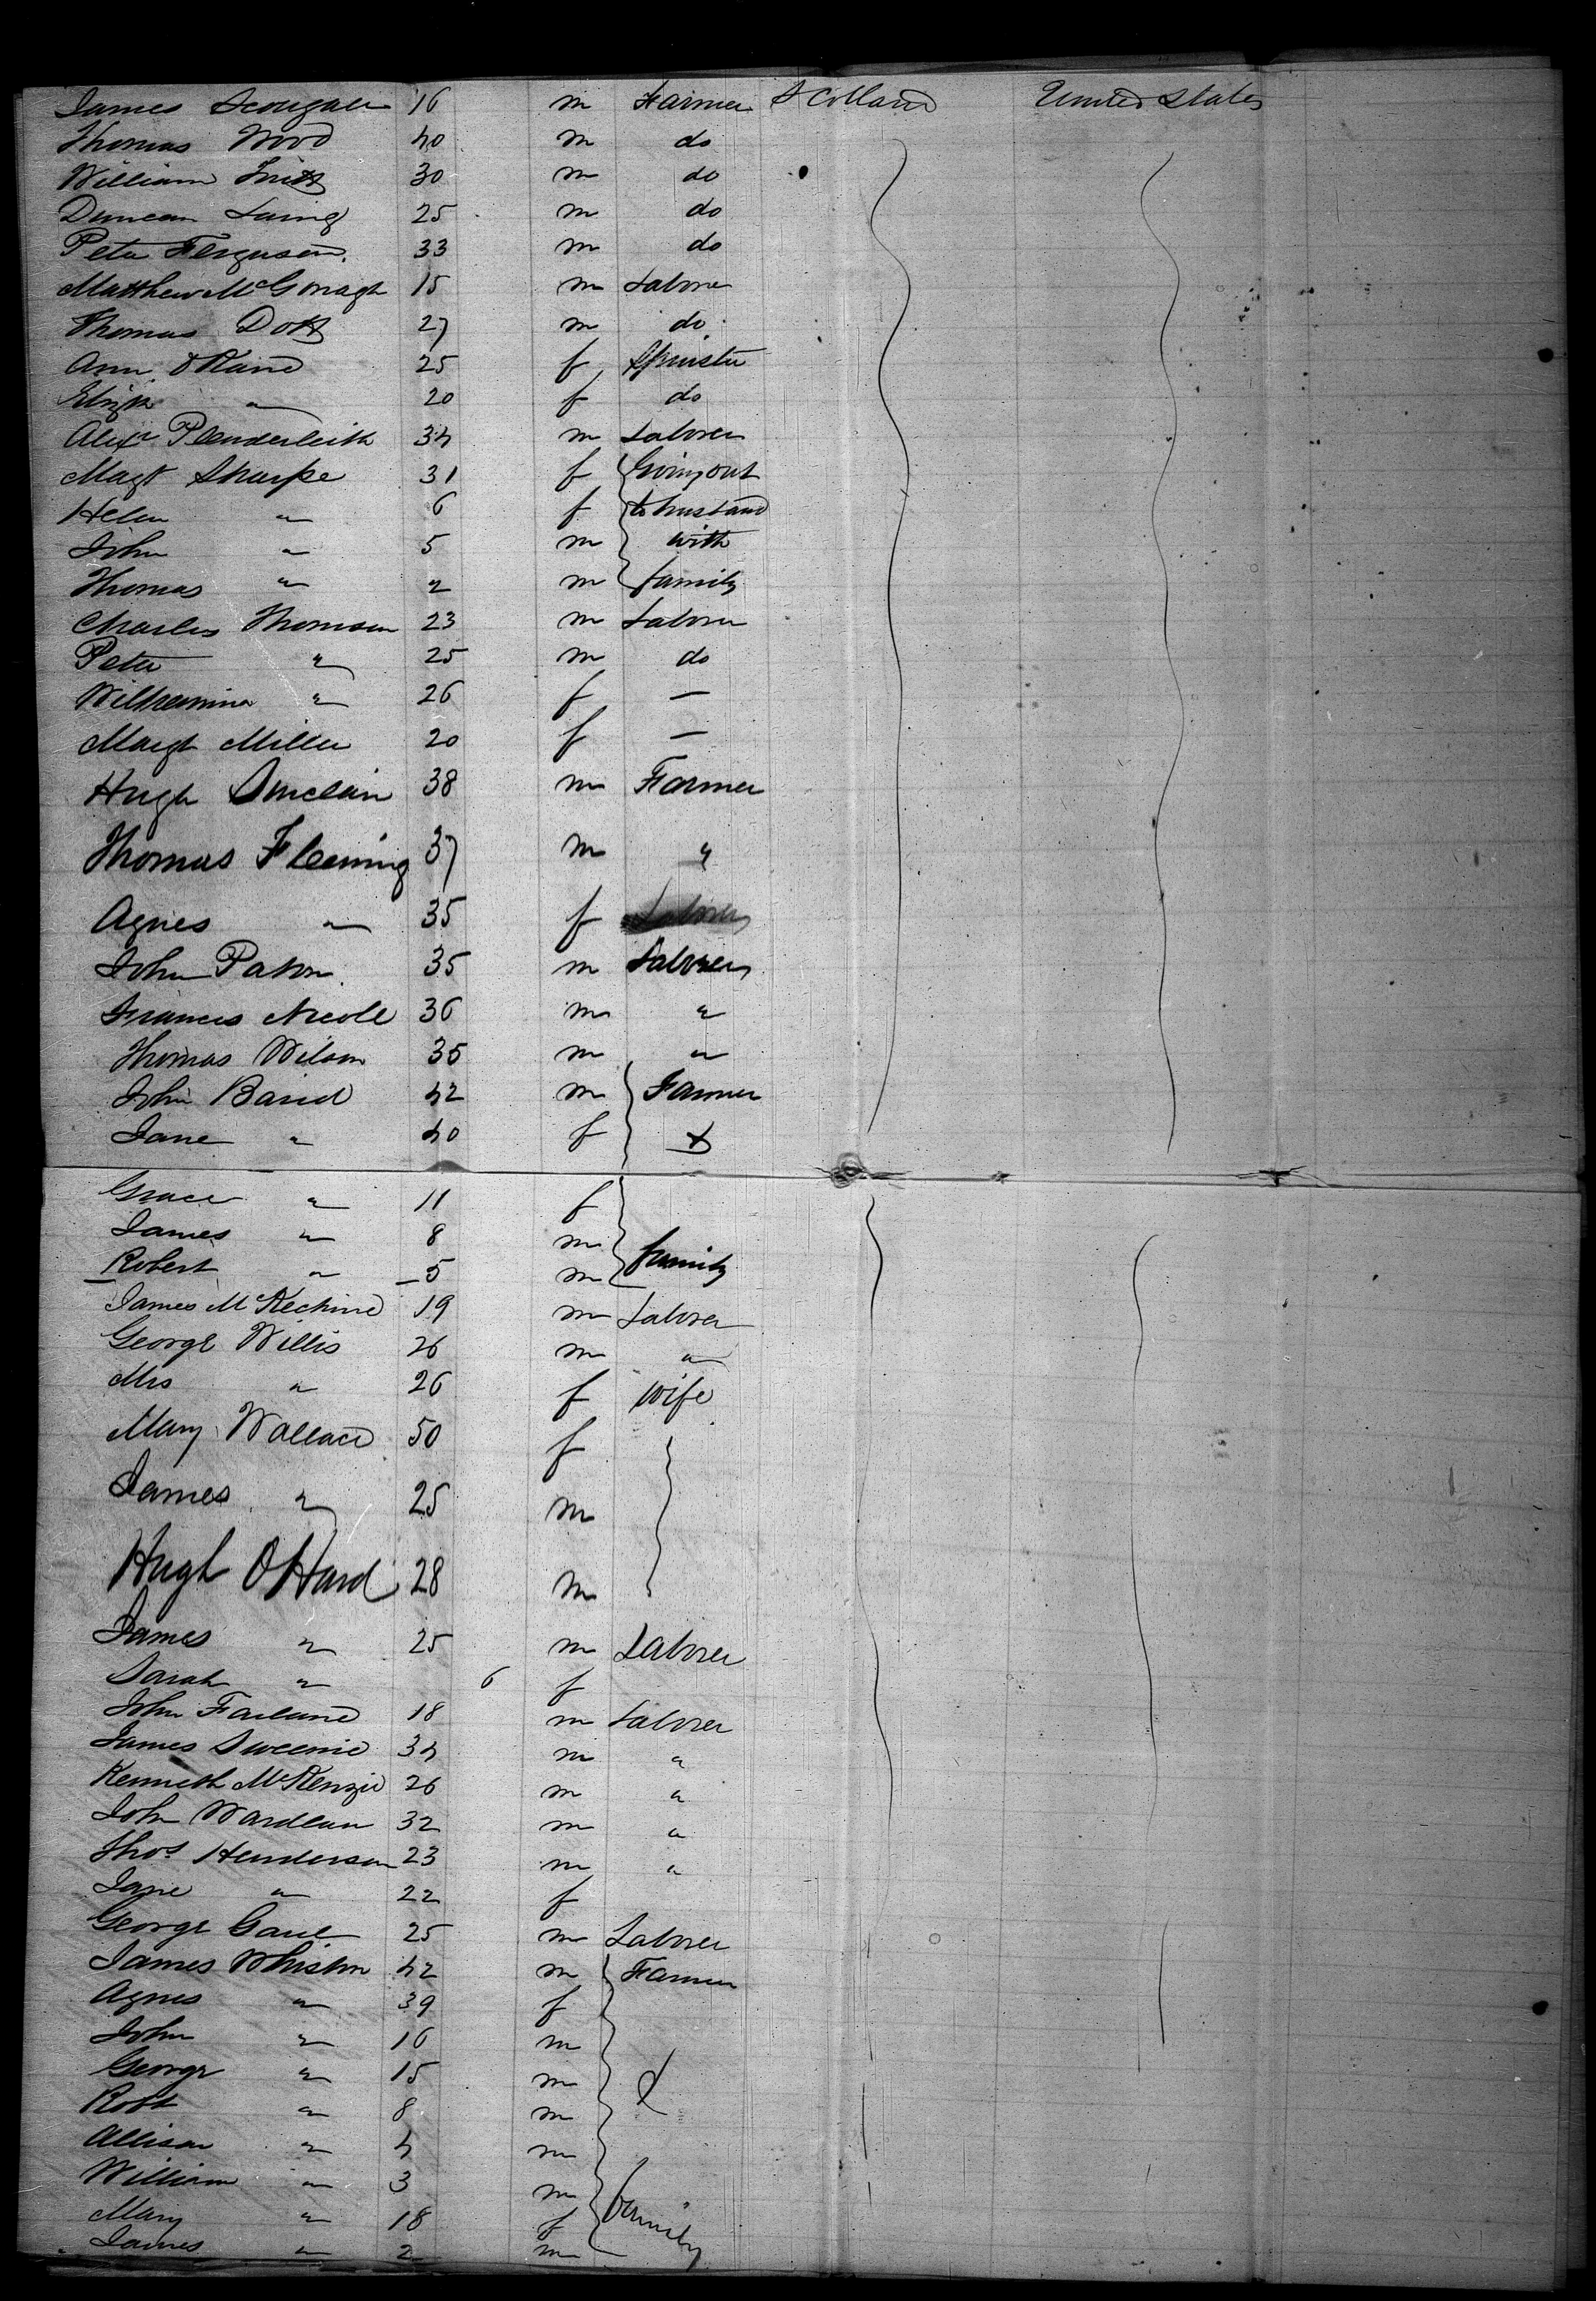 James Scougall 16 m Farmer Scotland United States
Thomas Wood 40 m do
William Frith 30 m do
Duncan Laing 25 m do
Peter Ferguson 33 m do
Matthew McGonagh 15 m Labore
Thomas Dott 27 m do
Ann O'Kane 25 f Spinster
Elizth " 20 f do
Alexr Plenderleith 34 m Laborer
Magt Sharpe 31 f Going out
Helen " 6 f to husband
John " 5 m with
Thomas " 2 m family
Charles Thomson 23 m Laborer
Peter " 25 m do
Wilhemina " 26 f —
Margt Miller 20 f —
Hugh Sinclair 38 m Farmer
Thomas Fleming 37 m "
Agnes " 35 f
John Paton 35 m Laborer
Francis Nicoll 36 m "
Thomas Wilson 35 m "
John Baird 42 m Farmer
Jane " 40 f &
Grace " 11 f
James " 8 m family
Robert " 5 m
James McKechnie 19 m Laborer
George Willis 26 m "
Mrs " 26 f wife
Mary Wallace 50 f
James " 25 m
Hugh O'Hard 28 m
James " 25 m Laborer
Sarah " 6 f
John Farland 18 m Laborer
James Sweenie 34 m "
Kenneth McKenzie 26 m "
John Wardlaw 32 m "
Thos Henderson 23 m "
Jane " 22 f
George Gaul 25 m Laborer
James Whiston 42 m Farmer
Agnes " 39 f
John " 16 m
George " 15 m &
Robt " 8 m
Allison " 4 m
William " 3 m
Mary " 18 f family
James " 2 m